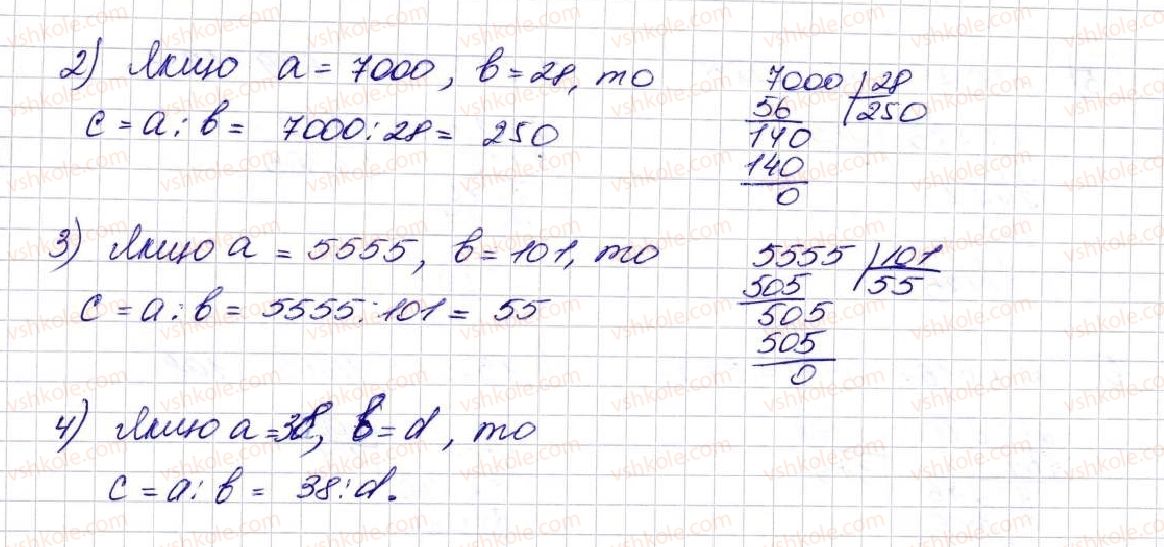 2) Якщо a = 7000, b = 28, то
c = a : b = 7000 : 28 = 250
7000 | 28
56 | 250
140
140
0
3) Якщо a = 5555, b = 101, то
c = a : b = 5555 : 101 = 55
5555 | 101
505 | 55
505
505
0
4) Якщо a = 38, b = d, то
c = a : b = 38 : d.
vshkole.com